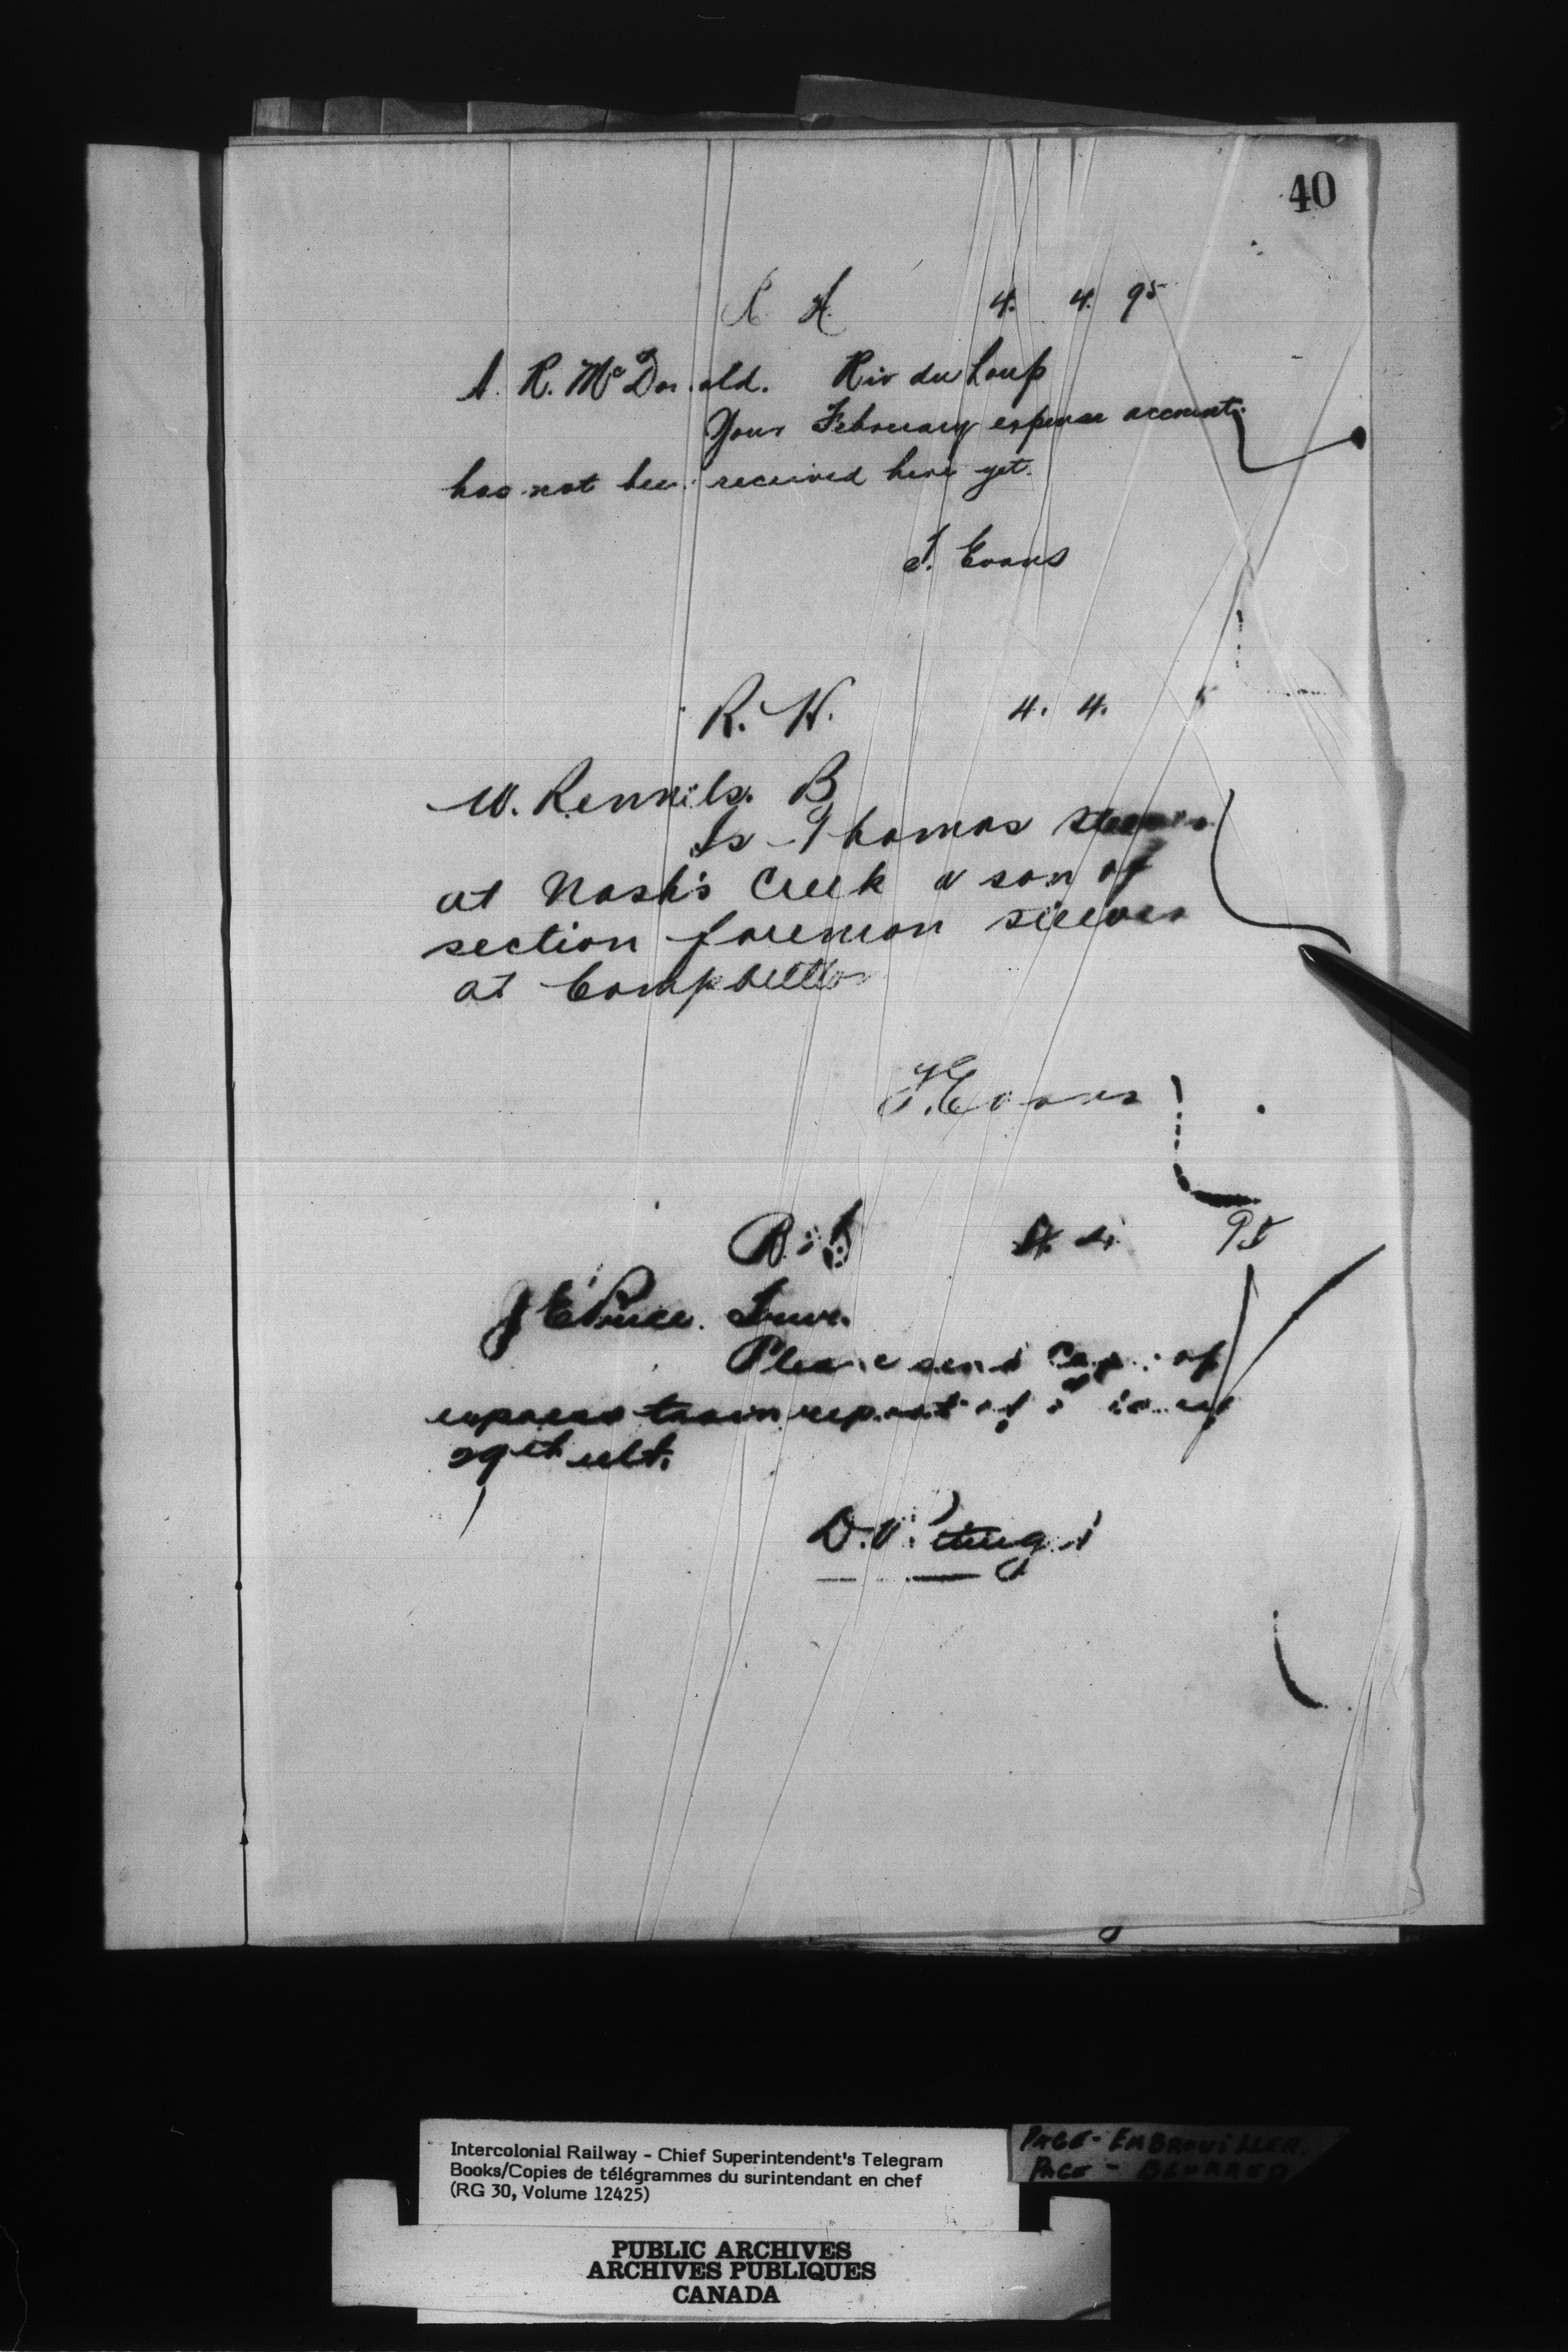 40
R. H. 4. 4. 95
A. R. McDonald. Riv du Loup
Your February expense account
has not been received here yet.
T. Evans
R. H. 4. 4. 5
W. Rennels. B
Is Thomas Steeves
at Nash's Creek a son of
section foreman steeves
at Campbellton
T. Evans
4. 4. 95
J E Price. Truro.
Please send Copy of
express train report of
29th ult.
Intercolonial Railway - Chief Superintendent's Telegram
Books/Copies de télégrammes du surintendant en chef
(RG 30, Volume 12425)
PAGE - EMBROUILLER.
PAGE - BLURRED
PUBLIC ARCHIVES
ARCHIVES PUBLIQUES
CANADA